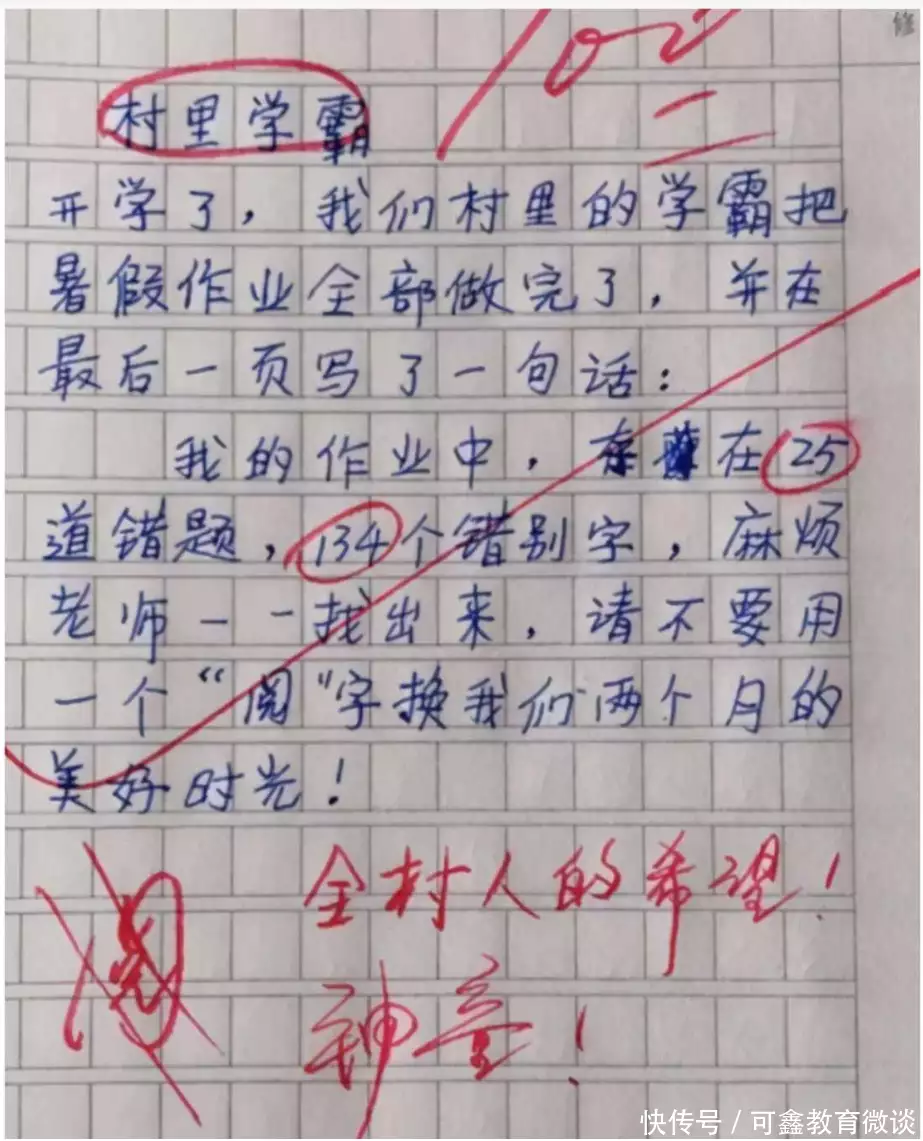 修
102
村里学霸
开学了，我们村里的学霸把
暑假作业全部做完了，并在
最后一页写了一句话：
我的作业中，存在25
道错题，134个错别字，麻烦
老师一一找出来，请不要用
一个“阅”字换我们两个月的
美好时光！
全村人的希望！
神童！
快传号 / 可鑫教育微谈